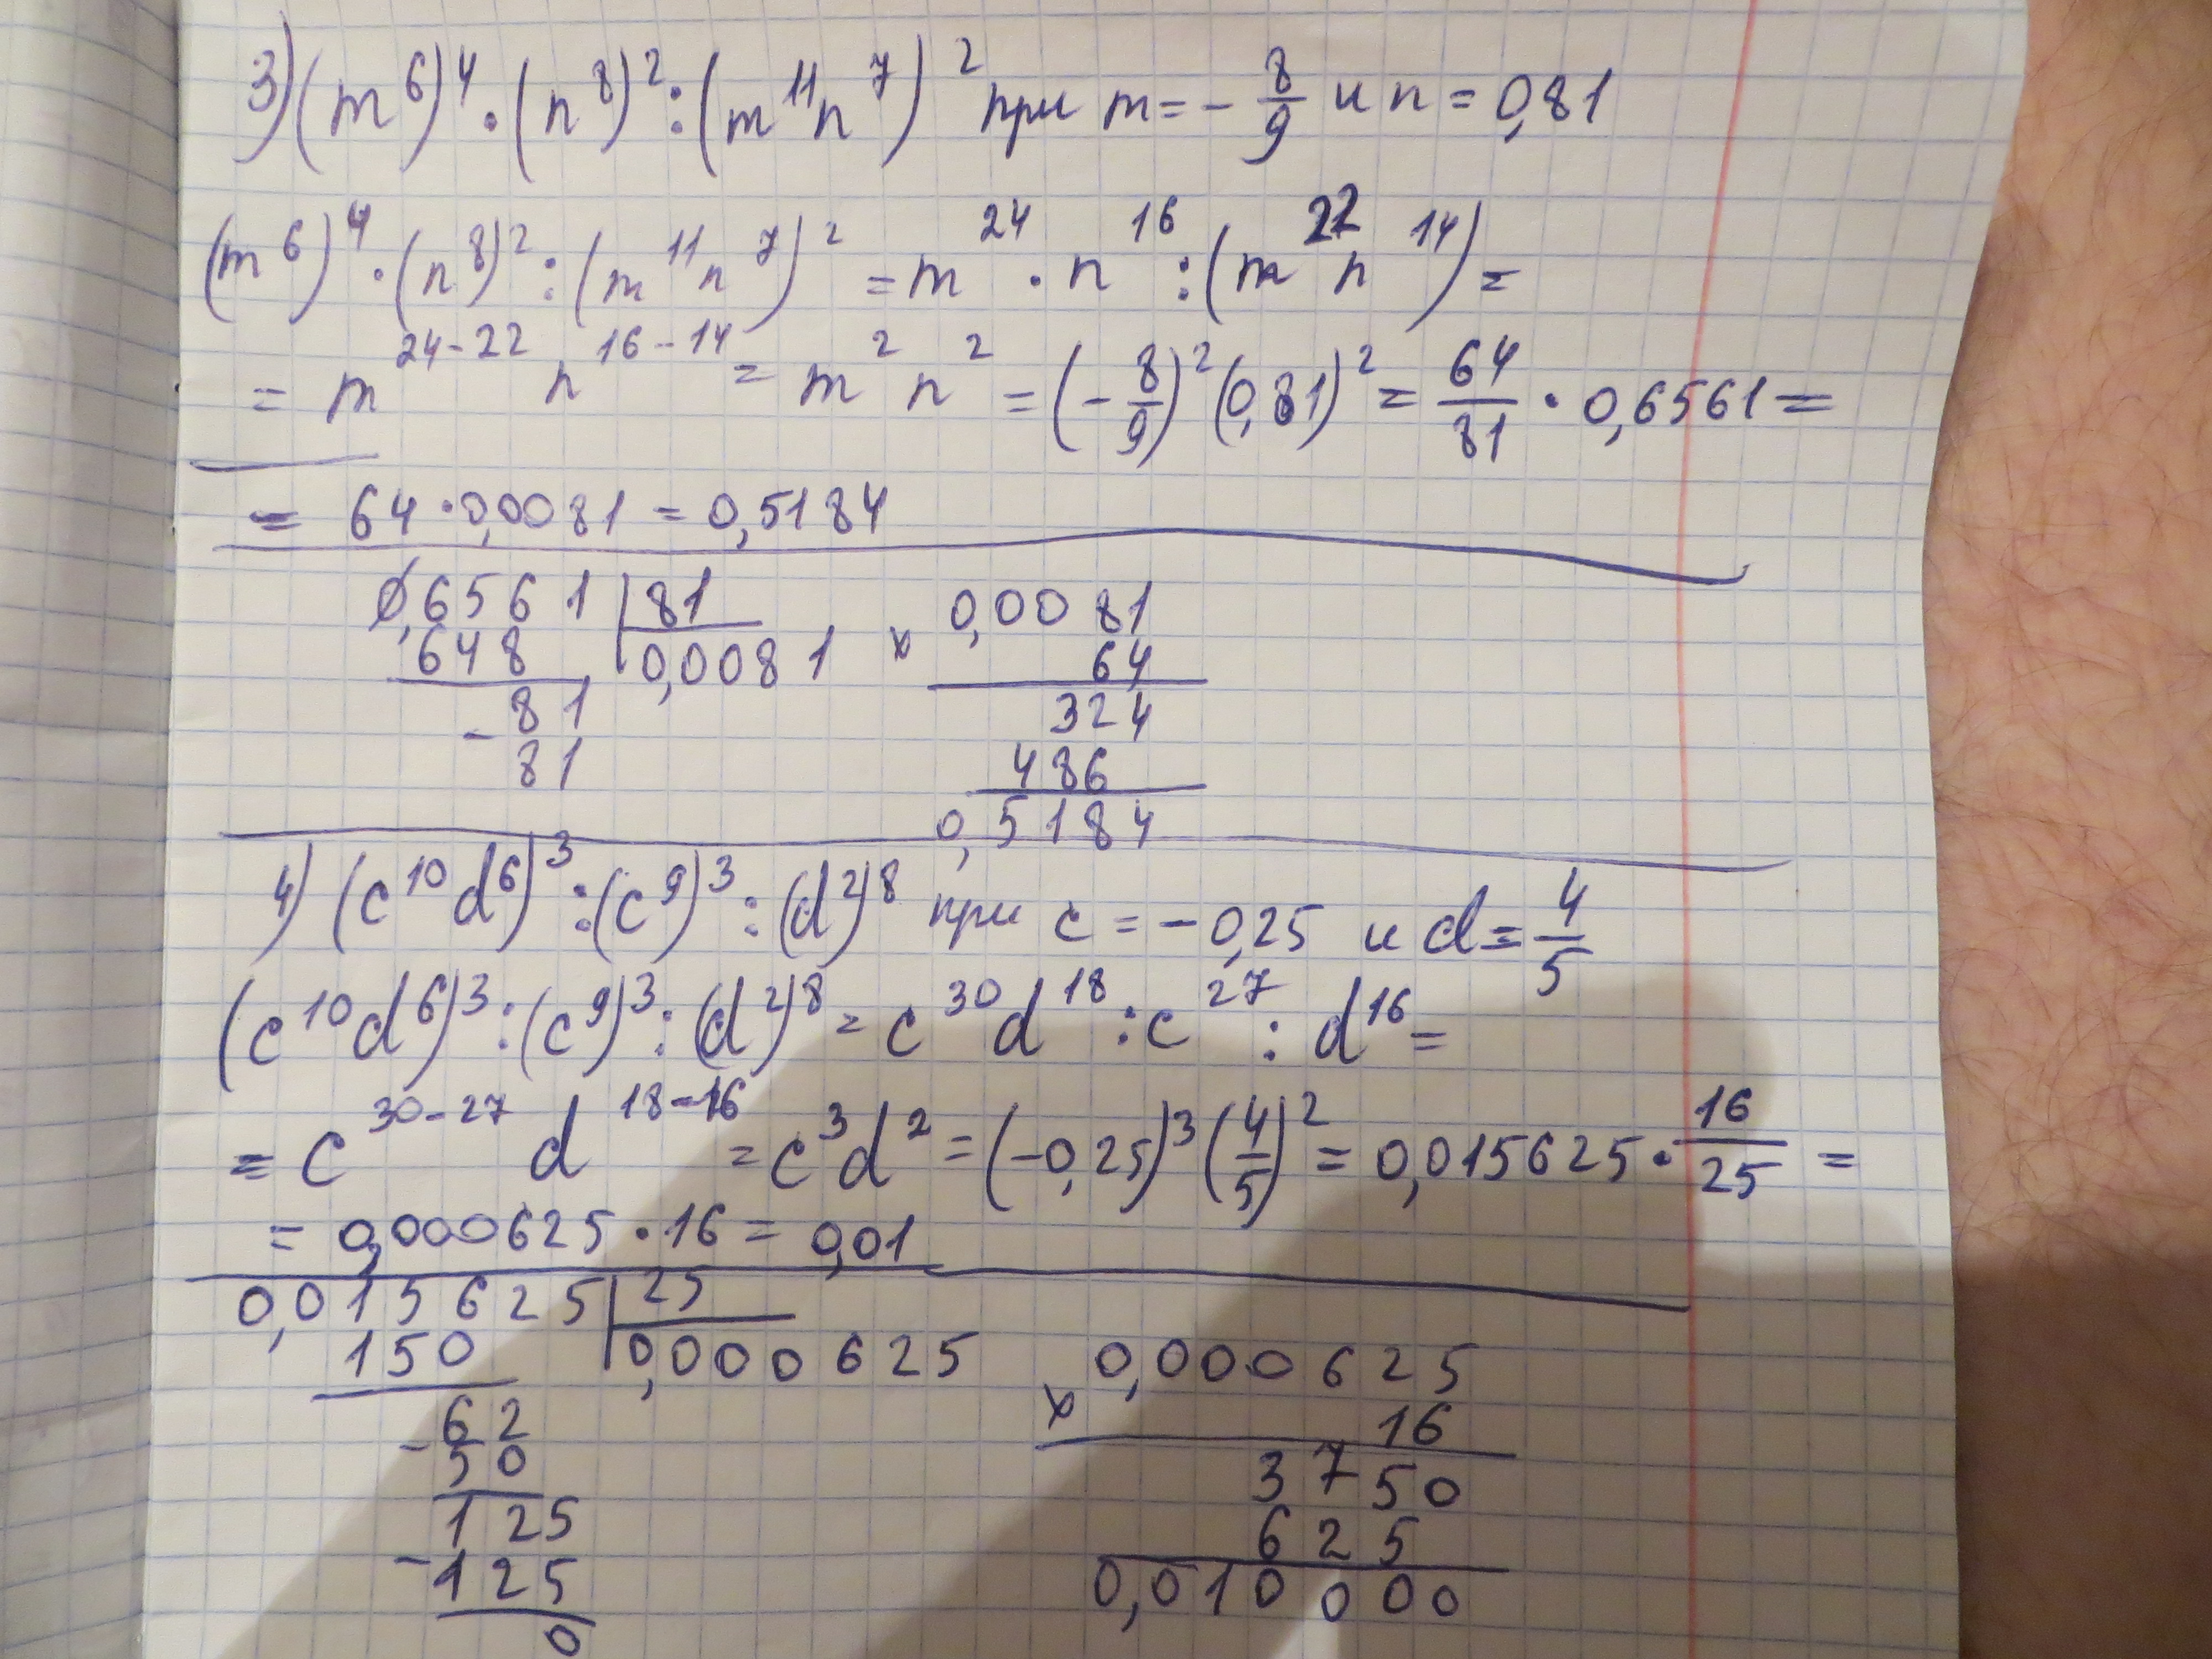 3) (m⁶)⁴ · (n⁸)² : (m¹¹n⁷)² при m = - 8/9 и n = 0,81
(m⁶)⁴ · (n⁸)² : (m¹¹n⁷)² = m²⁴ · n¹⁶ : (m²²n¹⁴) =
= m²⁴⁻²² n¹⁶⁻¹⁴ = m² n² = (- 8/9)² (0,81)² = 64/81 · 0,6561 =
= 64 · 0,0081 = 0,5184
0,6561 | 81
648 | 0,0081
- 81
81
x 0,0081
64
324
486
0,5184
4) (c¹⁰d⁶)³ : (c⁹)³ : (d²)⁸ при c = -0,25 и d = 4/5
(c¹⁰d⁶)³ : (c⁹)³ : (d²)⁸ = c³⁰d¹⁸ : c²⁷ : d¹⁶ =
= c³⁰⁻²⁷ d¹⁸⁻¹⁶ = c³d² = (-0,25)³ (4/5)² = 0,015625 · 16/25 =
= 0,000625 · 16 = 0,01
0,015625 | 25
150 | 0,000625
- 62
50
125
- 125
0
x 0,000625
16
3750
625
0,010000